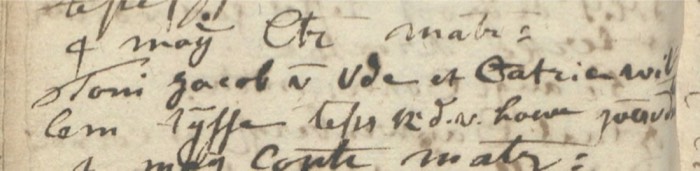 4 maÿ Ctr matr:
Toni Jacob v Ude et Catrie wil
lem tÿsse tess R. d. v. howe
4 maÿ Contr matr: